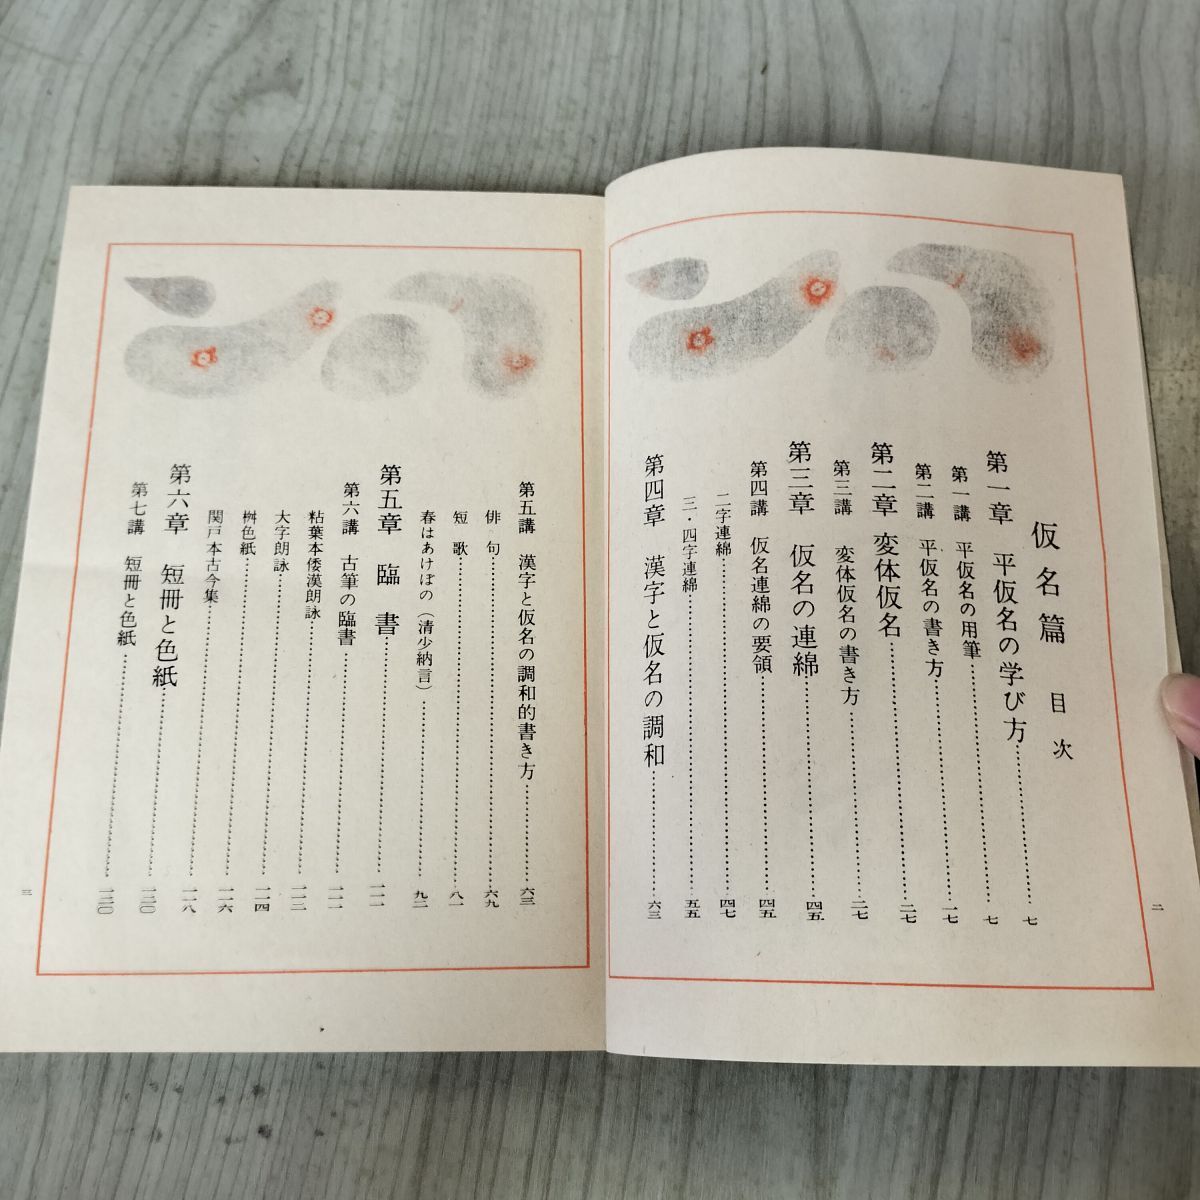 仮名篇 目次
第一章 平仮名の学び方……七
第一講 平仮名の用筆……七
第二講 平仮名の書き方……一七
第二章 変体仮名……二七
第三講 変体仮名の書き方……二七
第三章 仮名の連綿……四五
第四講 仮名連綿の要領……四五
二字連綿……四七
三・四字連綿……五五
第四章 漢字と仮名の調和……六三
二
第五講 漢字と仮名の調和的書き方……六三
俳句……六九
短歌……八一
春はあけぼの（清少納言）……九二
第五章 臨書……一一一
第六講 古筆の臨書……一一一
粘葉本倭漢朗詠……一一二
大字朗詠……一一四
桝色紙……一一六
関戸本古今集……一一八
第六章 短冊と色紙……一二〇
第七講 短冊と色紙……一二〇
三